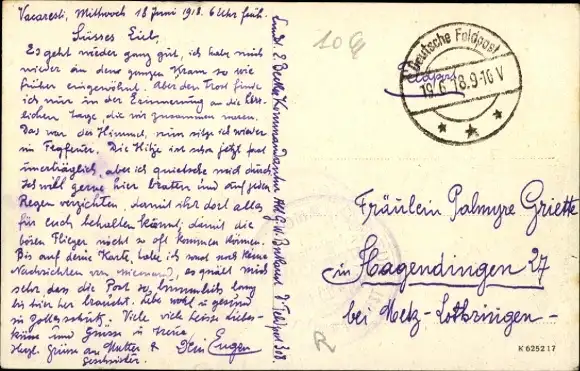 Vacaresti, Mittwoch 18 Juni 1918. 6 Uhr früh.
Süsses Eierl.
Es geht wieder ganz gut, ich habe mich
wieder an den ganzen Kram so wie
früher eingewöhnt. Aber den Trost finde
ich nur in der Erinnerung an die herr-
lichen Tage, die wir zusammen waren.
Das war der Himmel, nun sitze ich wieder
im Fegfeuer. Die Hitze ist schon jetzt fast
unerträglich, aber ich quietsche mich durch.
Ich will gerne hier braten und auf jeden
Regen verzichten, damit ihr dort alles
für euch behalten könnt, damit die
bösen Flieger nicht so oft kommen können.
Bis auf deine Karte, habe ich sonst noch keine
Nachrichten von niemand, es quält mich
sehr dass die Post so himmlisch lang
bis hier her braucht. Lebe wohl u gesund
in Gottesschutz. Viele viele heisse Liebes-
küsse und Grüsse in Treue
Herzl. Grüsse an Mutter & Dein Eugen
Geschwister.
Kommandantur
Feldpost 308.
10
Deutsche Feldpost
19.6.18.9-10 V
Feldpost
Fräulein Palmyre Griette
in Hagendingen 27
bei Metz - Lothringen -
R
K 6252 17